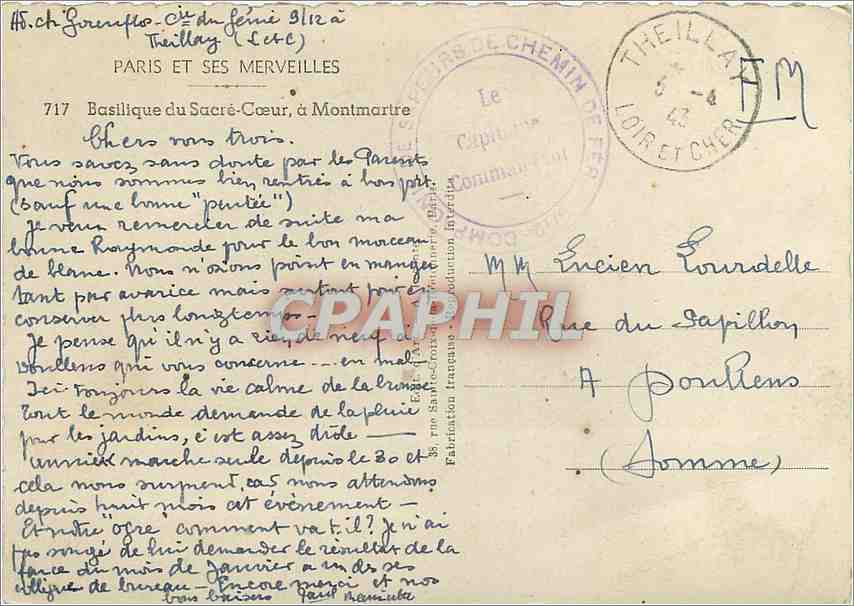 Ad. ch Gorenflos - Cie du Génie 9/12 à
Theillay (L et C)
PARIS ET SES MERVEILLES
717 Basilique du Sacré-Cœur, à Montmartre
Chers vous trois.
Vous savez sans doute par les Parents
que nous sommes bien rentrés à bon port.
(sauf une bonne "pentée")
Je veux remercier de suite ma
bonne Raymonde pour le bon morceau
de blanc. Nous n'osions point en manger
tant par avarice mais surtout pour en
conserver plus longtemps -
Je pense qu'il n'y a rien de neuf à
Doullens qui vous concerne ... en mal -
Ici toujours la vie calme de la brousse
Tout le monde demande de la pluie
pour les jardins, c'est assez drôle —
marche seule depuis le 30 et
cela nous surprend, car nous attendions
depuis huit mois cet évènement -
Et notre "ogre" comment va t-il? Je n'ai
pas songé de lui demander le résultat de la
farce du mois de Janvier à un de ses
collègues de bureau - Encore merci et nos
bons baisers Paul
SAPEURS DE CHEMIN DE FER
COMPAGNIE
Le
Capitaine
Commandant
THEILLAY
5 -4
43
LOIR ET CHER
FM
MM Lucien Lourdelle
Rue du Papillon
A Doullens
(Somme)
38, rue Sainte-Croix-de-la-Bretonnerie, Paris.
Fabrication française - Reproduction interdite
CPAPHIL